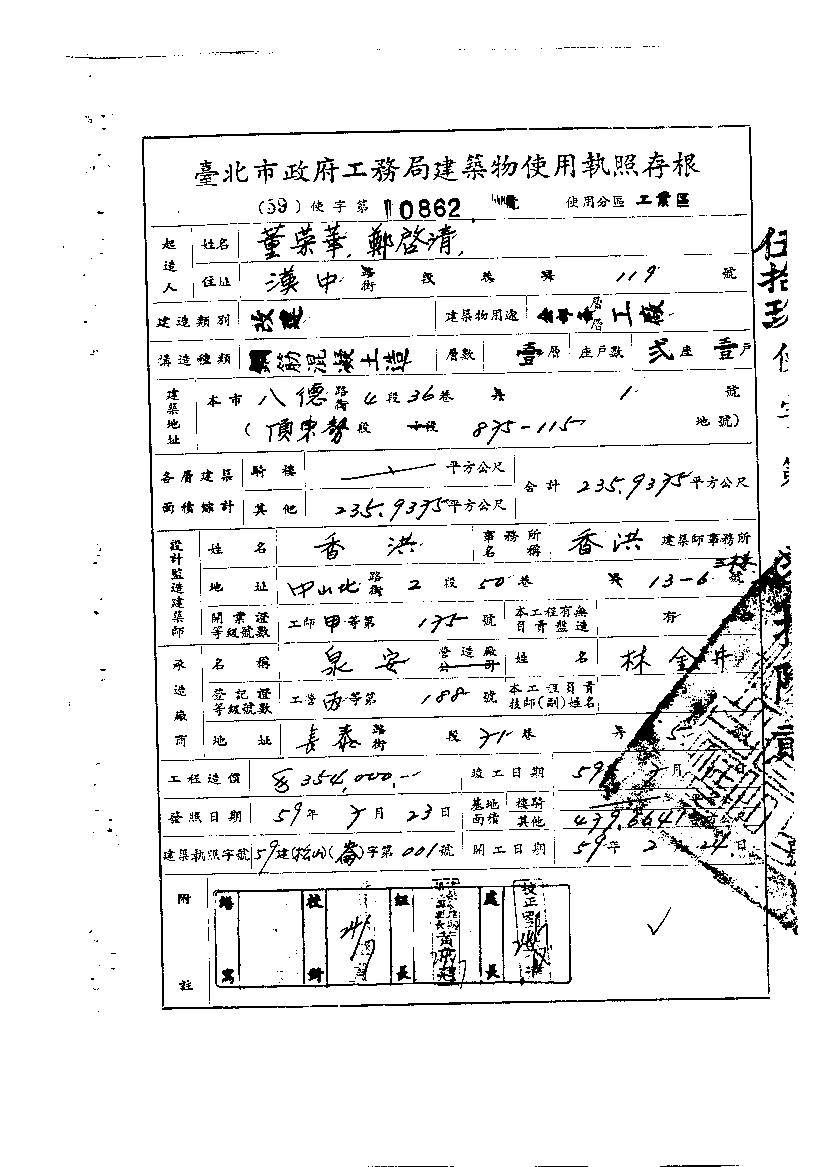 臺北市政府工務局建築物使用執照存根
(59) 使字第 10862 號 使用分區 工業區
起造人 姓名 董榮華. 鄭啓清.
住址 漢中 路街 段 巷 弄 119 號
建造類別 改建 建築物用途 層層 工廠
構造種類 鋼筋混凝土造 層數 壹層 座戶數 弍座 壹戶
建築地址 本市 八德 路街 4 段 36 巷 弄 1 號
(頂東勢 段 小段 875-115 地號)
各層建築面積總計 騎樓 平方公尺 合計 235.9375 平方公尺
其他 235.9375 平方公尺
設計監造建築師 姓名 香洪 事務所名稱 香洪 建築師事務所
地址 中山北 路街 2 段 50 巷 弄 13-6 號 三樓
開業證等級號數 工師 甲 等第 175 號 本工程有無負責監造 有
承造廠商 名稱 泉安 營造廠公司 姓名 林金井
登記證等級號數 工營 丙 等第 188 號 本工程負責技師(副)姓名
地址 長泰 路街 段 71 巷 弄 5 號
工程造價 354,000.- 竣工日期 59 年 月 日
發照日期 59 年 7 月 23 日 基地面積 騎樓 其他 439.6641 平方公尺
建築執照字號 59 建(松山)(崙)字第 001 號 開工日期 59 年 2 月 24 日
附註
繕寫 校對 組長 處長
伍拾玖使字第